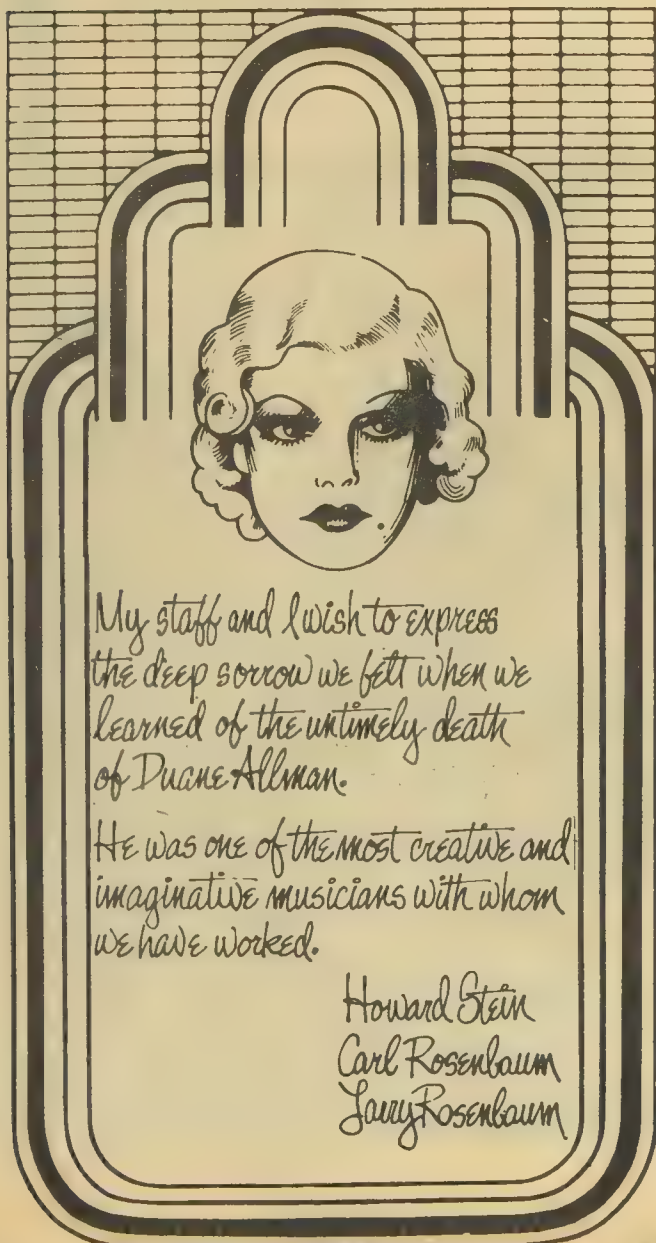 My staff and I wish to express
the deep sorrow we felt when we
learned of the untimely death
of Duane Allman.
He was one of the most creative and
imaginative musicians with whom
we have worked.
Howard Stein
Carl Rosenbaum
Larry Rosenbaum